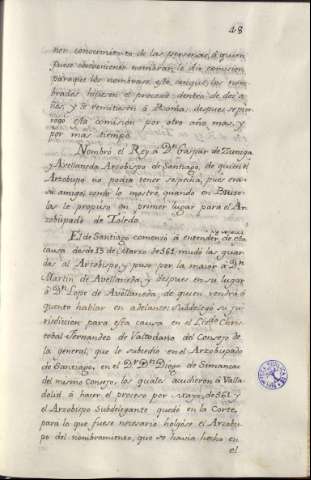 48
ner conocimiento de las personas, á quien
fuese conbeniente nombrar, le dio comision
paraque los nombrase, y q.e aunque los nom-
brados hiciesen el proceso dentro de dos a-
ños, y le remitiesen á Roma, despues se pro-
rrogó esta comision por otro año mas, y
por mas tiempo.
Nombró el Rey á D.n Gaspar de Zuñiga
y Avellaneda Arzobispo de Santiago, de quien el
Arzobispo no podia tener sospecha, pues era
su amigo, como lo mostró, quando en Bruse-
las le propuso en primer lugar para el Ar-
zobispado de Toledo.
El de Santiago comenzó á entender de esta
causa desde 13 de Marzo de 561 mudó las guar-
das al Arzobispo, y puso por la maior á D.n
Martin de Avellaneda, y despues en su lugar
á D.n Lope de Avellaneda, de quien vendrá á
quento hablar en adelante: Subdelegó su ju-
risdicion para esta causa en el Lic.do Chris-
tobal Fernandez de Valtodano del Consejo de
la general, que le subcedio en el Arzobispado
de Santiago, en el D.r D.n Diego de Simancas
del mismo Consejo, los quales acudieron á Valla-
dolid á hacer el proceso por Mayo de 561 y
el Arzobispo Subdelegante quedó en la Corte,
para lo que fuese necesario holgóse el Arzobis-
po del nombramiento, que se havia hecho en
el